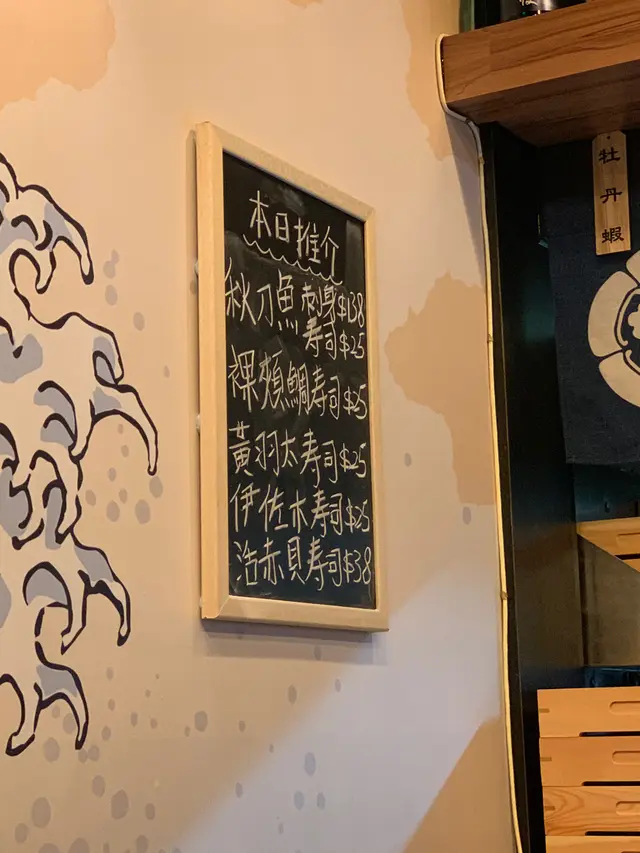 本日推介
秋刀魚刺身$138
寿司$25
裸頰鯛寿司$25
黃羽太寿司$25
伊佐木寿司$25
活赤貝寿司$38
牡丹蝦